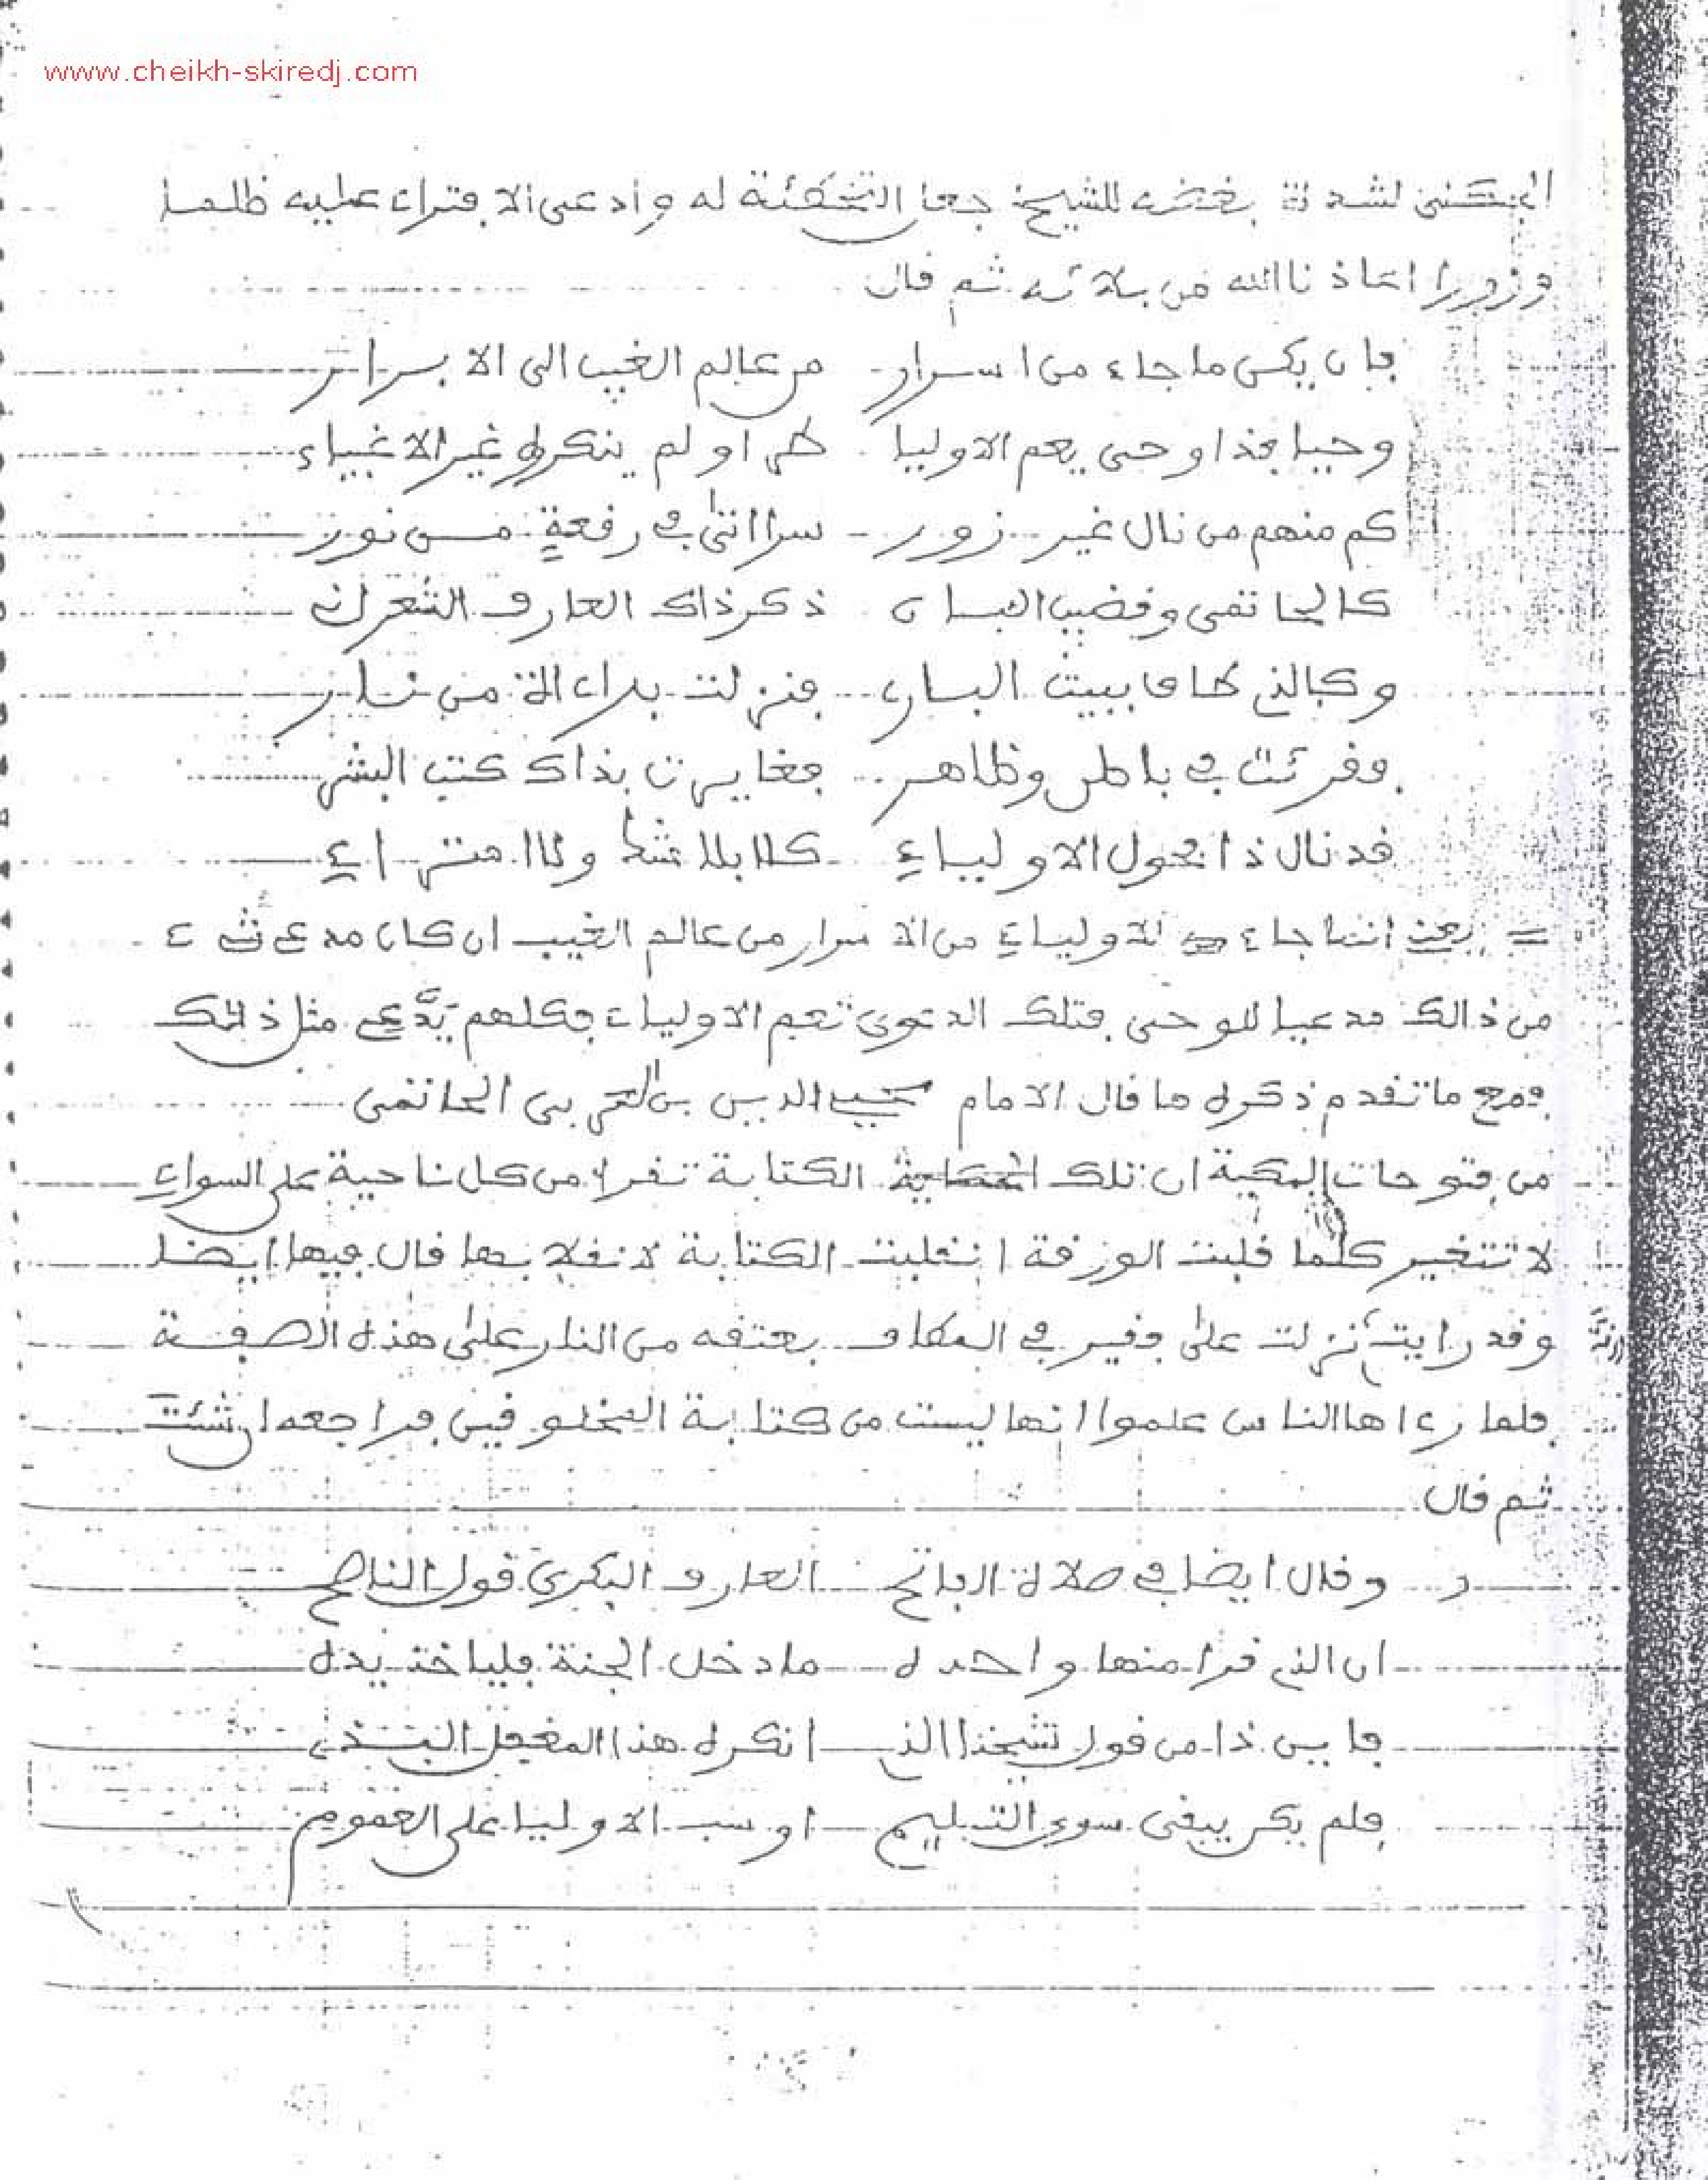 www.cheikh-skiredj.com
لشدة بغضه للشيخ جعل التخطئة له وادعى الافتراء عليه ظلما
وزورا اعاذنا الله من بلائه ثم قال
فان يكن ما جاء من اسرار من عالم الغيب الى الابرار
وحيا فذا وحى يعم الاوليا طرا ولم ينكره غير الاغبياء
كم منهم من نال غير زور سرا اتى في رفعة من نور
كالحاتمى وقضيب البان ذكر ذاك العارف الشعران
وكالذي طاف ببيت الباري فنزلت براءة من نار
وقرئت في باطن وظاهر فغايرت بذاك كتب البشر
قد نال ذا فحول الاولياء كلا بلا شك ولا امتراء
= يعني انما جاء للاولياء من الاسرار من عالم الغيب ان كان مدعى شيء
من ذالك مدعيا للوحى فتلك الدعوى تعم الاولياء فكلهم يدَّعي مثل ذلك
ومع ما تقدم ذكره ما قال الامام محيي الدين بن العربى الحاتمى
من فتوحات المكية ان تلك الكتابة تقرا من كل ناحية على السواء
لا تتغير كلما قلبت الورقة انقلبت الكتابة لانقلابها قال فيها ايضا
وقد رايت ورقة نزلت على فقير في المطاف بعتقه من النار على هذه الصفة
فلما رءاها الناس علموا انها ليست من كتابة المخلوقين فراجعه ان شئت
ثم قال
وقال ايضا في صلاة الفاتح العارف البكري قول الناصح
ان الذي قرا منها واحده ما دخل الجنة فلياخذ يده
فاين ذا من قول شيخنا الذي انكره هذا المغفل البذي
فلم يكن يبقى سوى التسليم او سب الاوليا على العموم